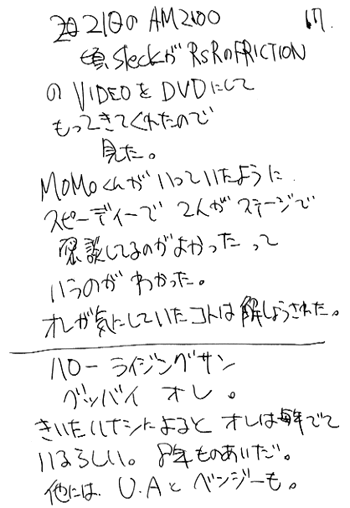 21日の AM2:00 17.
頃 SleckがRSRのFRICTION
のVIDEOをDVDにして
もってきてくれたので
見た。
MOMOくんがいっていたように
スピーディーで 2人がステージで
談してるのがよかったって
いうのが わかった。
オレが気にしていたコトは解しょうされた。
ハロー ライジングサン
グッバイ オレ 。
きいたハナシによると オレは毎年でて
いるらしい。 8年ものあいだ。
他には U.Aと ベンジーも。